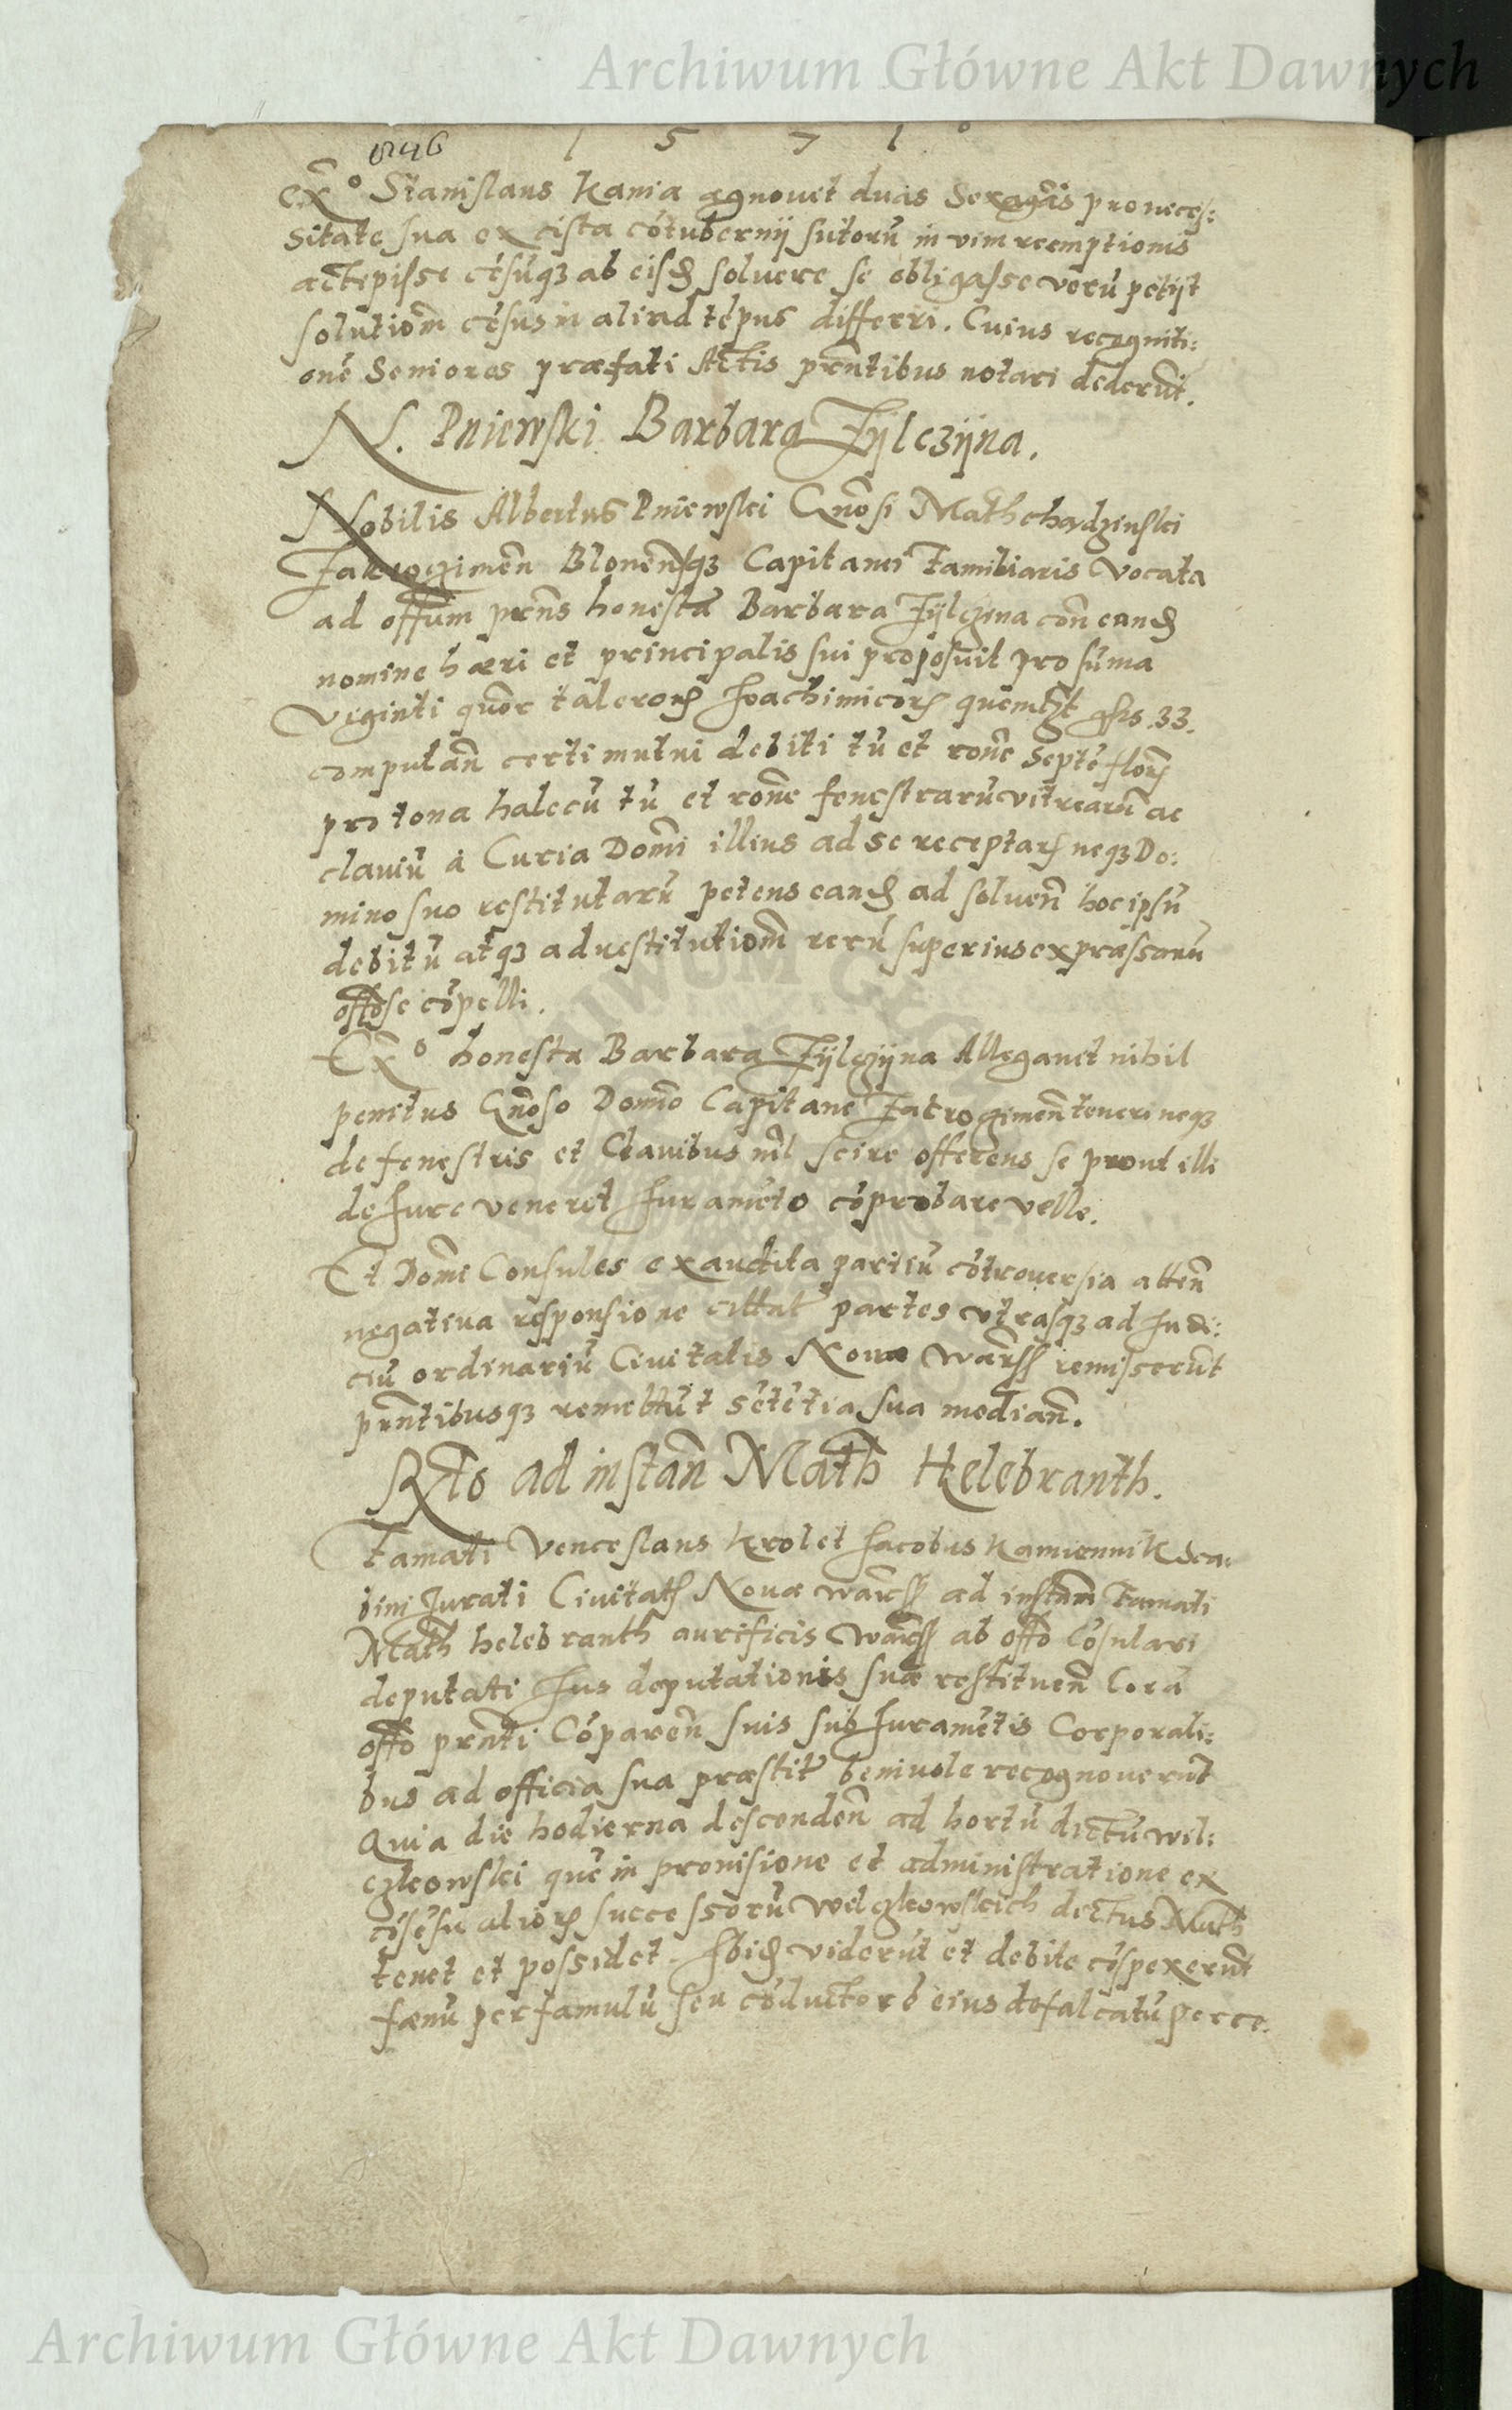 Archiwum Główne Akt Dawnych
1 5 7 1
Ex° Stanislaus Kania agnouit duas Sexagēs pro neces:
sitate sua ex cista cōtubernij sutorū in vim reemptionis
accepisse cēsūqȝ ab eisd soluere se obligasse verū petijt
solutiom cēsus in aliud tēpus differri. Cuius recogniti:
onē Seniores præfati Actis prntibus notari dederūt.
N. Pniewski Barbara Fÿlczÿna.
Nobilis Albertus Pniewski Gnosi Math chadzinski
Blonen Capitanei Familiaris Vocata
ad offum prns honesta Barbara Fÿlczina con eand
nomine hæri et principalis sui proposuit pro sūma
viginti quor taleror Joachimicor grs .33.
computan certi mutui debiti tū et rone septē flor
pro tona halecū tū et rone fenestrarū vitrearū ac
clauiū à Curia Domi illius ad se receptar neqȝ Do:
mino suo restitutarū petens eand ad soluen hoc ipsū
debitū atqȝ ad restitutiom rerū superius expressarū
offose cōpelli.
Ex° honesta Barbara Fÿlczÿna Allegauit nihil
penitus Gnoso Domino Capitaneo teneri neqȝ
de fenestris et Clauibus nil scire offerens se prout illi
de Jure venerit Juramēto cōprobare velle.
Et Domi Consules exaudita partiū cōtrouersia atten
negatiua responsione partes vtrasqȝ ad Judi:
ciū ordinariū Ciuitatis Nouæ warss remiserūt
prntibusqȝ remittūt sētētia sua median.
Rto ad instan Math Helebranth.
Famati Venceslaus Krol et Jacobus Kamiennik Sca:
bini Jurati Ciuitatis Nouæ warss ad instam Famati
Math helebranth aurificis warss ab offo Cōsulari
deputati Jus deputationis suæ restituen Corā
offo prnti Cōparen suis sub Juramētis Corporali:
bus ad officia sua præstit beniuole recognouerūt
Quia die hodierna descenden ad hortū dictū wil:
czkowski quē in prouisione et administratione ex
cōsēsu alior successorū wilczkowskich dictus Math
tenet et possidet. Ibid viderūt et debite cōspexerūt
fænū per famulū seu cōductorē eius defalcatū
Archiwum Główne Akt Dawnych